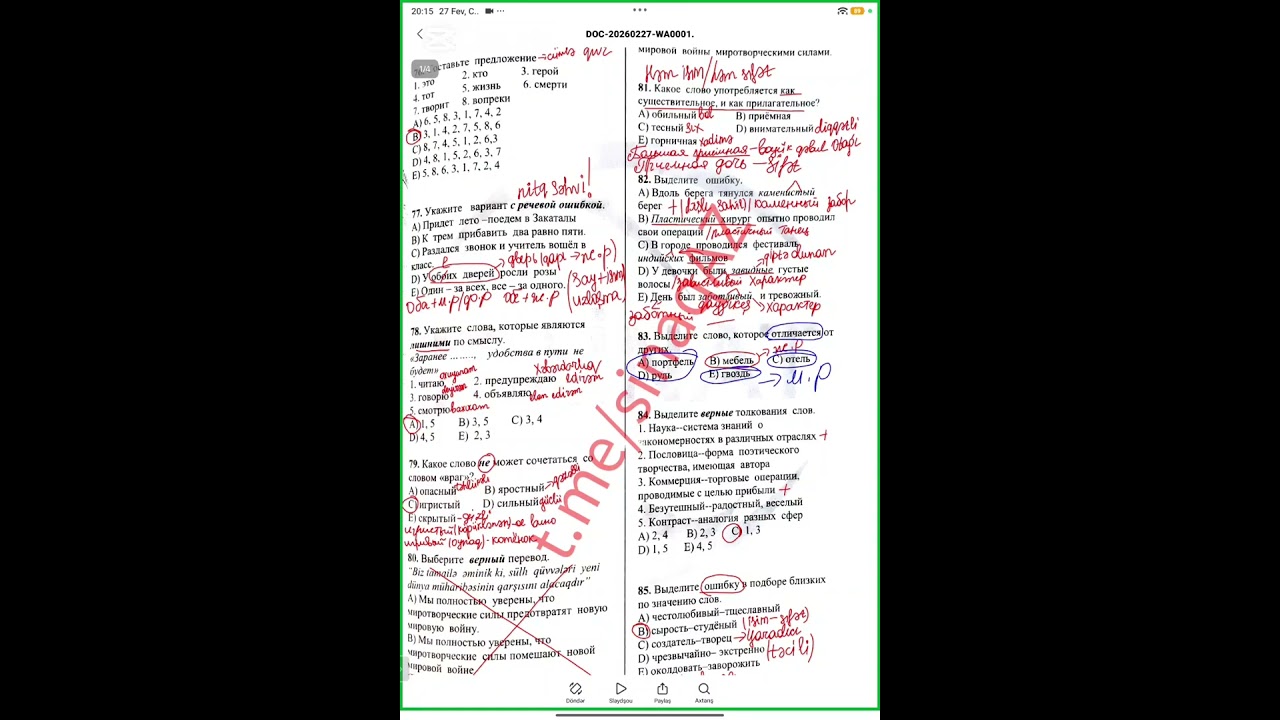 20:15 27 Fev, C..
DOC-20260227-WA0001.
1/4
оставьте предложение → cümlə qur
1. это 2. кто 3. герой
4. тот 5. жизнь 6. смерти
7. творит 8. вопреки
A) 6, 5, 8, 3, 1, 7, 4, 2
B) 3, 1, 4, 2, 7, 5, 8, 6
C) 8, 7, 4, 5, 1, 2, 6,3
D) 4, 8, 1, 5, 2, 6, 3, 7
E) 5, 8, 6, 3, 1, 7, 2, 4
nitq səhvi!
77. Укажите вариант с речевой ошибкой.
A) Придет лето –поедем в Закаталы
B) К трем прибавить два равно пяти.
C) Раздался звонок и учитель вошёл в
класс.
дверь
D) У обоих дверей росли розы
E) Один – за всех, все – за одного.
78. Укажите слова, которые являются
лишними по смыслу.
«Заранее ........, удобства в пути не
будет»
1. читаю 2. предупреждаю edirəm
3. говорю 4. объявляю elan edirəm
5. смотрю baxıram
A) 1, 5 B) 3, 5 C) 3, 4
D) 4, 5 E) 2, 3
79. Какое слово не может сочетаться со
словом «враг»?
A) опасный təhlükəli B) яростный
C) игристый D) сильный güclü
E) скрытый – gizli
игривый (oynaq) – котёнок
80. Выберите верный перевод.
"Biz tamailə əminik ki, sülh qüvvələri yeni
dünya müharibəsinin qarşısını alacaqdır"
A) Мы полностью уверены, что
миротворческие силы предотвратят новую
мировую войну.
B) Мы полностью уверены, что
миротворческие силы помешают новой
мировой войне
мировой войны миротворческими силами.
Həm isim/həm sifət
81. Какое слово употребляется как
существительное, и как прилагательное?
A) обильный bol B) приёмная
C) тесный sıx D) внимательный diqqətli
E) горничная xadimə
Большая приёмная – böyük qəbul otağı
Приемная дочь – sifət
82. Выделите ошибку.
A) Вдоль берега тянулся каменистый
берег + (daşlı sahil) / каменный забор
B) Пластический хирург опытно проводил
свои операции / пластичный танец
C) В городе проводился фестиваль
индийских фильмов
qibtə olunan
D) У девочки были завидные густые
волосы / завистливый характер
E) День был заботливый и тревожный.
характер
83. Выделите слово, которое отличается от
других. ж.р
A) портфель B) мебель C) отель
D) руль E) гвоздь → м.р
84. Выделите верные толкования слов.
1. Наука--система знаний о
закономерностях в различных отраслях +
2. Пословица--форма поэтического
творчества, имеющая автора
3. Коммерция--торговые операции,
проводимые с целью прибыли +
4. Безутешный--радостный, веселый
5. Контраст--аналогия разных сфер
A) 2, 4 B) 2, 3 C) 1, 3
D) 1, 5 E) 4, 5
85. Выделите ошибку в подборе близких
по значению слов.
A) честолюбивый–тщеславный
B) сырость–студёный (isim – sifət)
C) создатель–творец → yaradıcı
D) чрезвычайно– экстренно (təcili)
E) околдовать–заворожить
t.me/sinaqAZ
Döndər Slaydşou Paylaş Axtarış